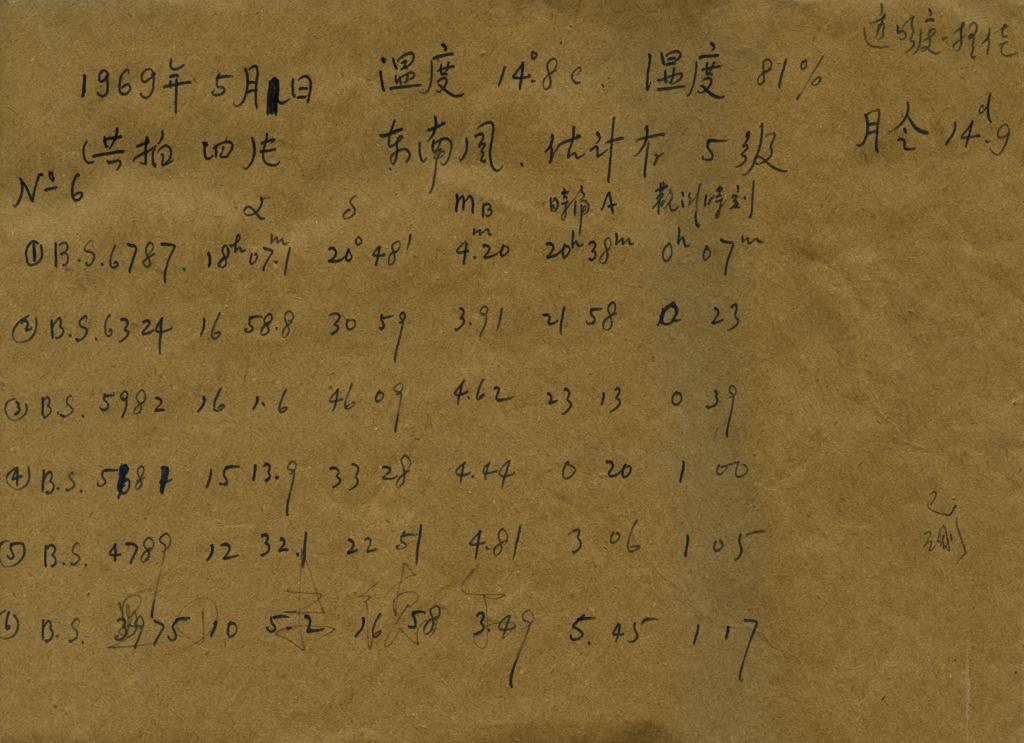 透明度-较佳
1969年 5月1日 温度 14°.8c. 湿度 81%
(共拍四片 东南风. 估计有 5级 月令 14.9d
Nº 6
α δ mB 時角A 観測時刻
① B.S.6787. 18h 07.m1 20° 48' 4.m20 20h 38m 0h 07m
② B.S.6324 16 58.8 30 59 3.91 21 58 0 23
③ B.S. 5982 16 1.6 46 09 4.62 23 13 0 39
④ B.S. 5681 15 13.9 33 28 4.44 0 20 1 00
⑤ B.S. 4789 12 32.1 22 51 4.81 3 06 1 05
⑥ B.S. 3975 10 5.2 16 58 3.49 5.45 1 17
已